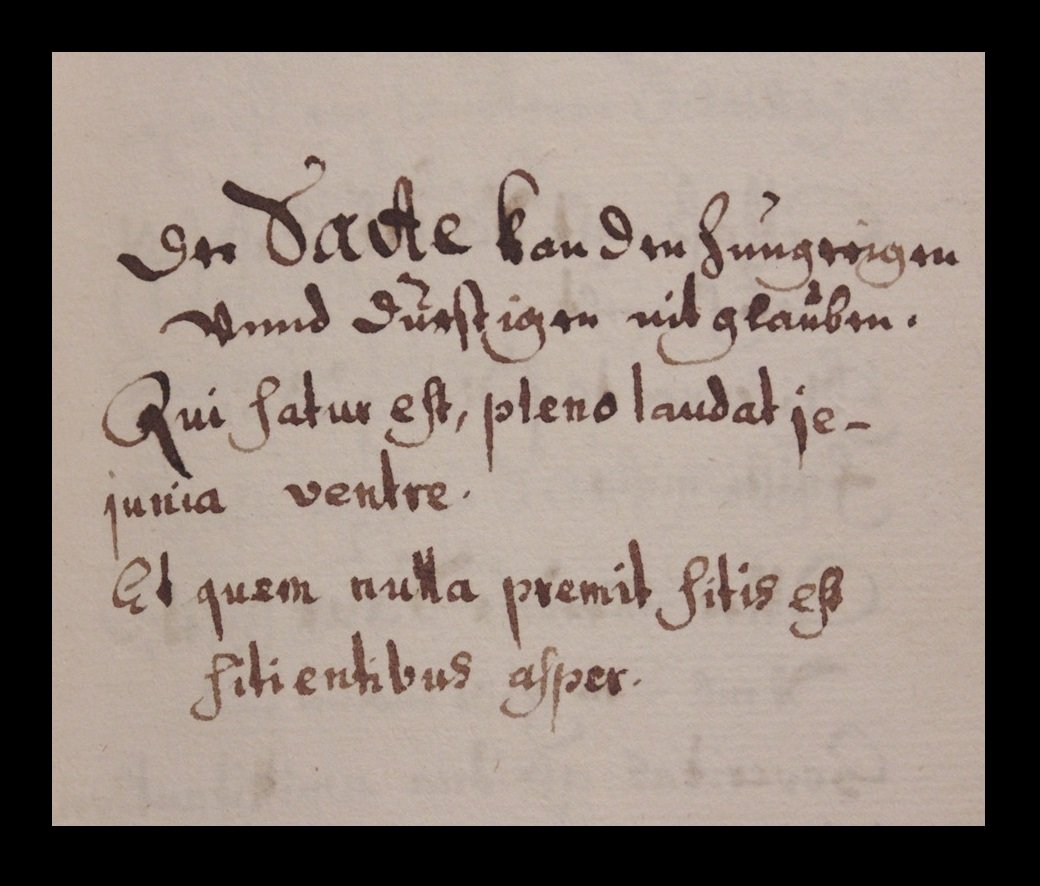 Der Satte kan den Hungerigen
Vnnd dürstigen nit glauben.
Qui satur est, pleno laudat je-
junia ventre.
Et quem nulla premit sitis est
sitientibus asper.